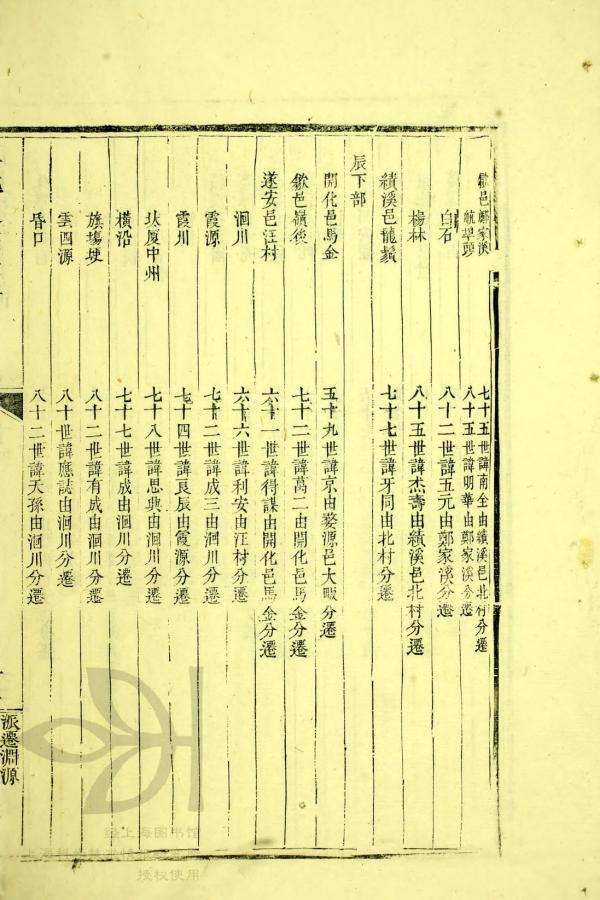 歙邑鄭家溪 七十五世諱南全由績溪邑北村分遷
航埠頭 八十五世諱明華由鄭家溪分遷
白石 八十二世諱五元由鄭家溪分遷
楊林 八十五世諱杰壽由績溪邑北村分遷
績溪邑龍 七十七世諱牙同由北村分遷
辰下部
開化邑馬金 五十九世諱京由婺源邑大畈分遷
歙邑嶺後 七十二世諱萬二由開化邑馬金分遷
遂安邑汪村 六十一世諱得謀由開化邑馬金分遷
洄川 六十六世諱利安由汪村分遷
霞源 七十二世諱成三由洄川分遷
霞川 七十四世諱良辰由霞源分遷
厦中州 七十八世諱思典由洄川分遷
橫沿 七十七世諱成由洄川分遷
旗塲埂 八十二世諱有成由洄川分遷
雲四源 八十世諱應誌由洄川分遷
昏口 八十二世諱天孫由洄川分遷
派遷淵源
经上海图书馆
授权使用